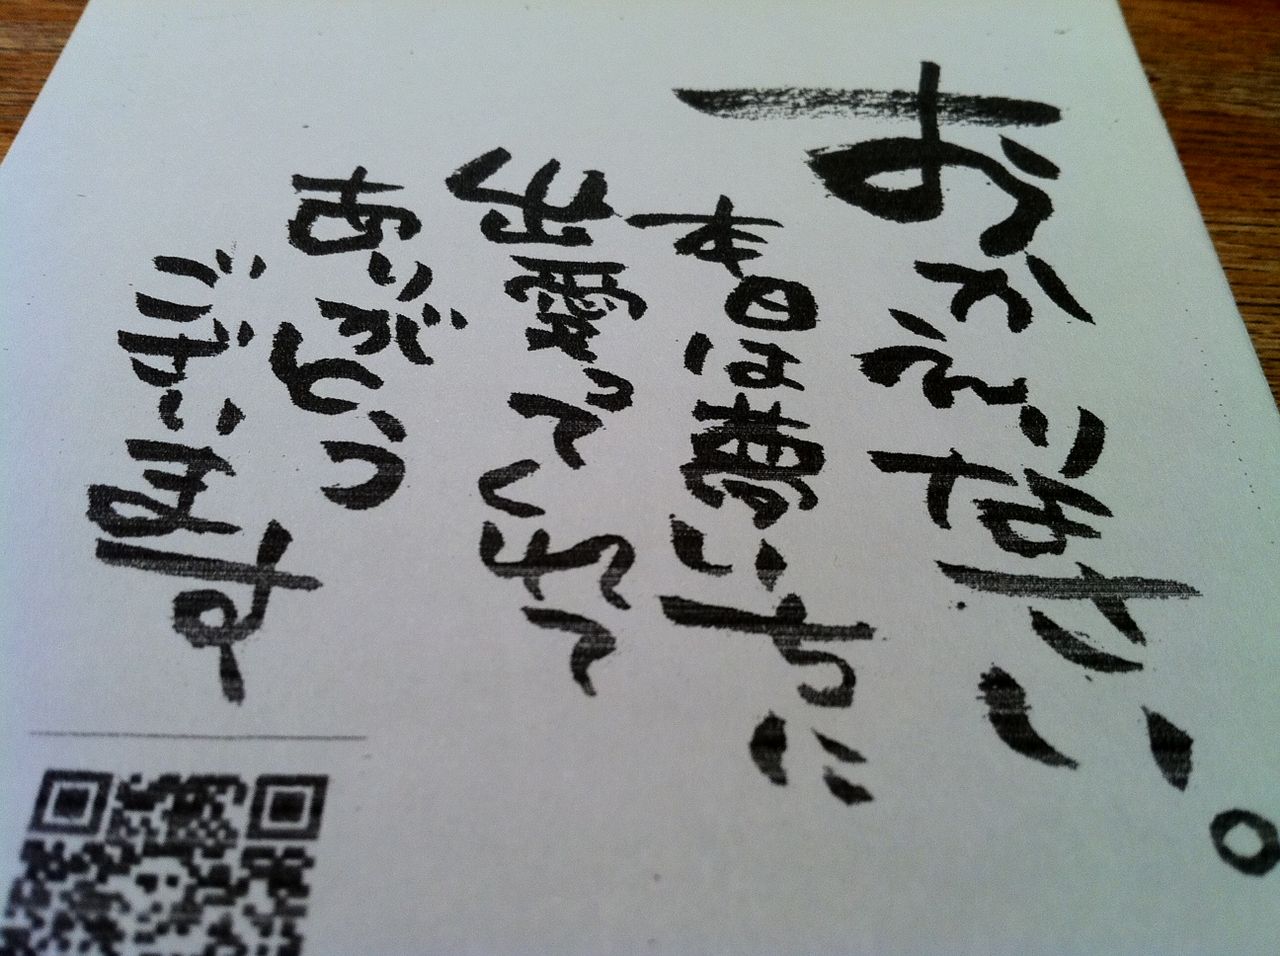 おかえりなさい。
本日は夢いちご
出愛ってくれて
ありがとう
ございます